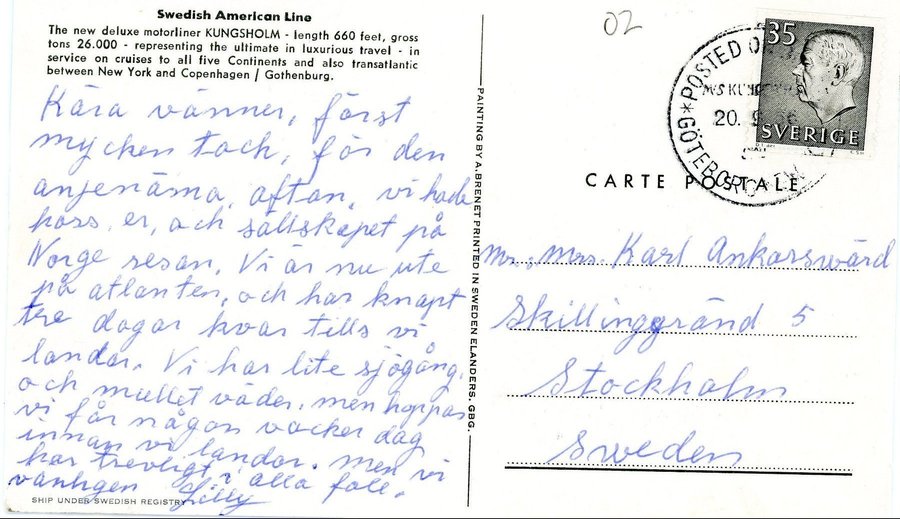 Swedish American Line
The new deluxe motorliner KUNGSHOLM - length 660 feet, gross
tons 26.000 - representing the ultimate in luxurious travel - in
service on cruises to all five Continents and also transatlantic
between New York and Copenhagen / Gothenburg.
Kära vänner, först
mycken tack, för den
angenäma, afton, vi hade
hoss, er, och sällskapet på
Norge resan. Vi är nu ute
på atlanten, och har knapt
tre dagar kvar tills vi
landar. Vi har lite sjögång,
och mullet väder, men hoppas
vi får någon vacker dag
innan vi landar. men vi
har trevligt i alla fall.
vänligen Lilly
SHIP UNDER SWEDISH REGISTRY
PAINTING BY A. BRENET PRINTED IN SWEDEN ELANDERS, GBG.
02
35
SVERIGE
*POSTED
M/S
20.
*GÖTEBORG
CARTE POSTALE
Mr., Mrs. Karl Ankarswärd
Skillinggränd 5
Stockholm
Sweden